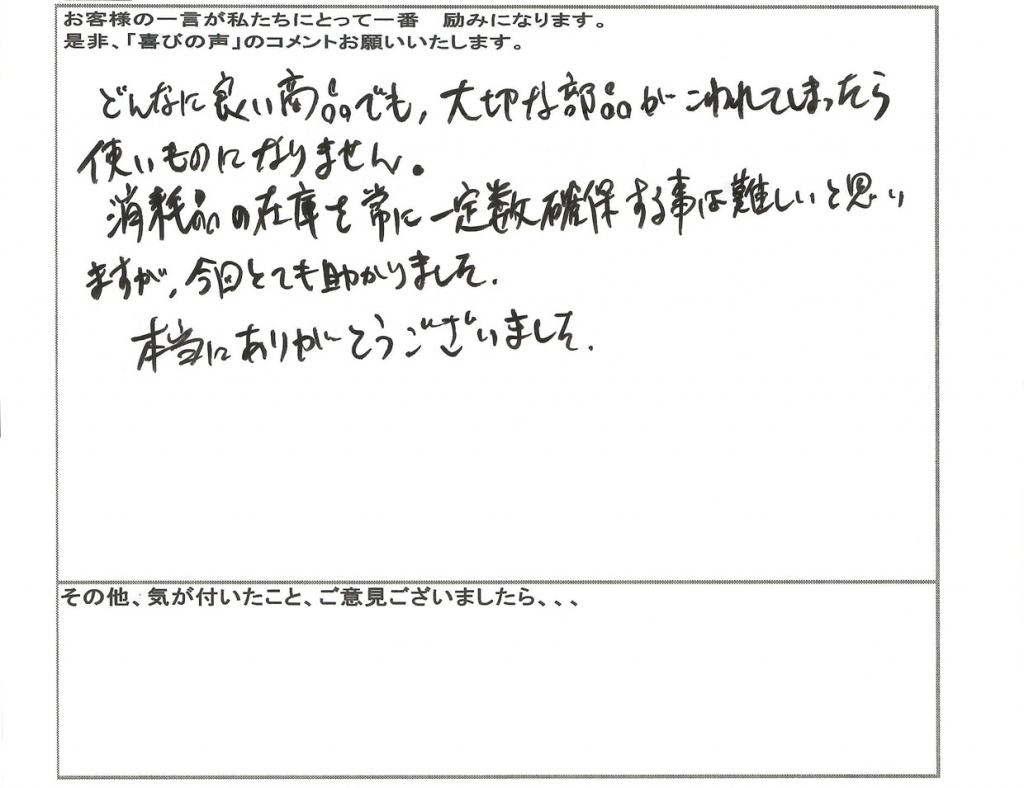 お客様の一言が私たちにとって一番　励みになります。
是非、「喜びの声」のコメントお願いいたします。
どんなに良い商品でも、大切な部品がこわれてしまったら
使いものになりません。
消耗品の在庫を常に一定数確保する事は難しいと思い
ますが、今回とても助かりました。
本当にありがとうございました。
その他、気が付いたこと、ご意見ございましたら、、、